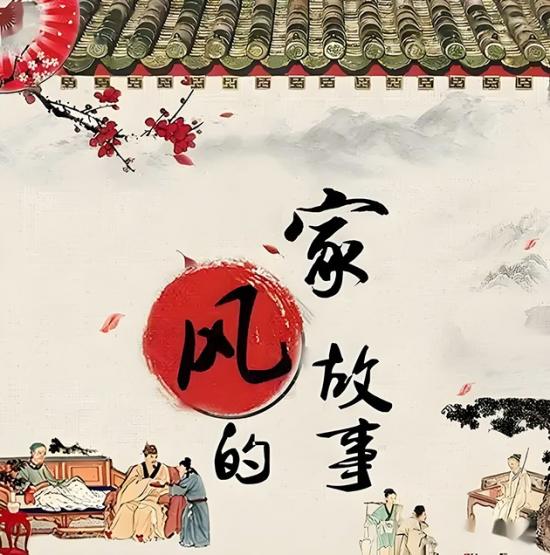 家风的
故事